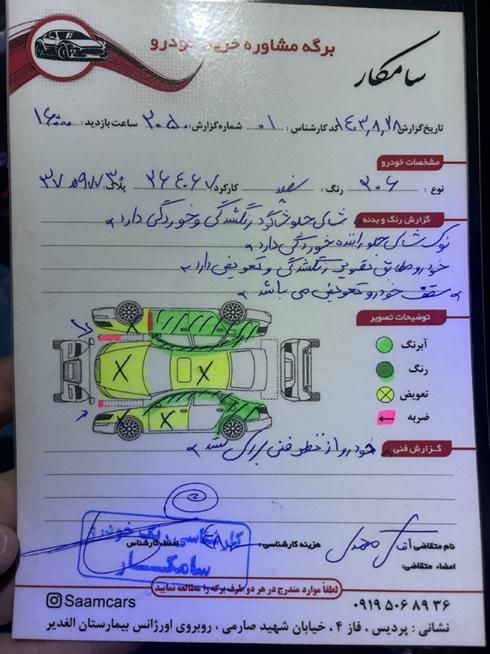 سامکار
برگه مشاوره خرید خودرو
تاریخ گزارش: ۱۴۰۳,۸,۲۸ کد کارشناس: ۰۱ شماره گزارش: ۲۰۵۰ ساعت بازدید:
مشخصات خودرو
نوع: ۲۰۶ رنگ: سفید کارکرد: پلاک:
گزارش رنگ و بدنه
شاسی جلو شاگرد رنگشدگی و خوردگی دارد
نوک شاسی جلو راننده خوردگی دارد
خودرو مطابق تصویر رنگشدگی و تعویضی دارد
سقف خودرو تعویض می باشد
توضیحات تصویر
آبرنگ
رنگ
تعویض
ضربه
گزارش فنی
خودرو از نظر فنی بررسی نشد
نام متقاضی: هزینه کارشناسی: امضاء کارشناس
امضاء متقاضی:
کارشناسی رنگ خودرو
سامکار
لطفاً موارد مندرج در هر دو طرف برگه را مطالعه نمایید
Saamcars
۰۹۱۹ ۵۰۶ ۸۹ ۳۶
نشانی: پردیس، فاز ۴، خیابان شهید صارمی، روبروی اورژانس بیمارستان الغدیر